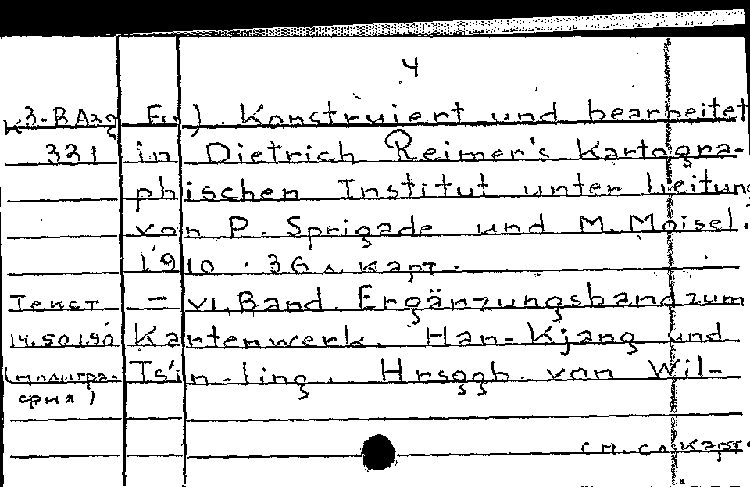 4
К3-ВАзд Fu). Konstruiert und bearbeitet
331 in Dietrich Reimer's Kartogra-
phischen Institut unter Leitung
von P. Sprigade und M. Moisel.
1910. 36 л. карт.
Текст — VI, Band. Ergänzungsband zum
14.50190 Kartenwerk. Han-Kjang und
(полигра- Ts'in-ling. Hrsgb. von Wil-
фия)
см. сл. карт.